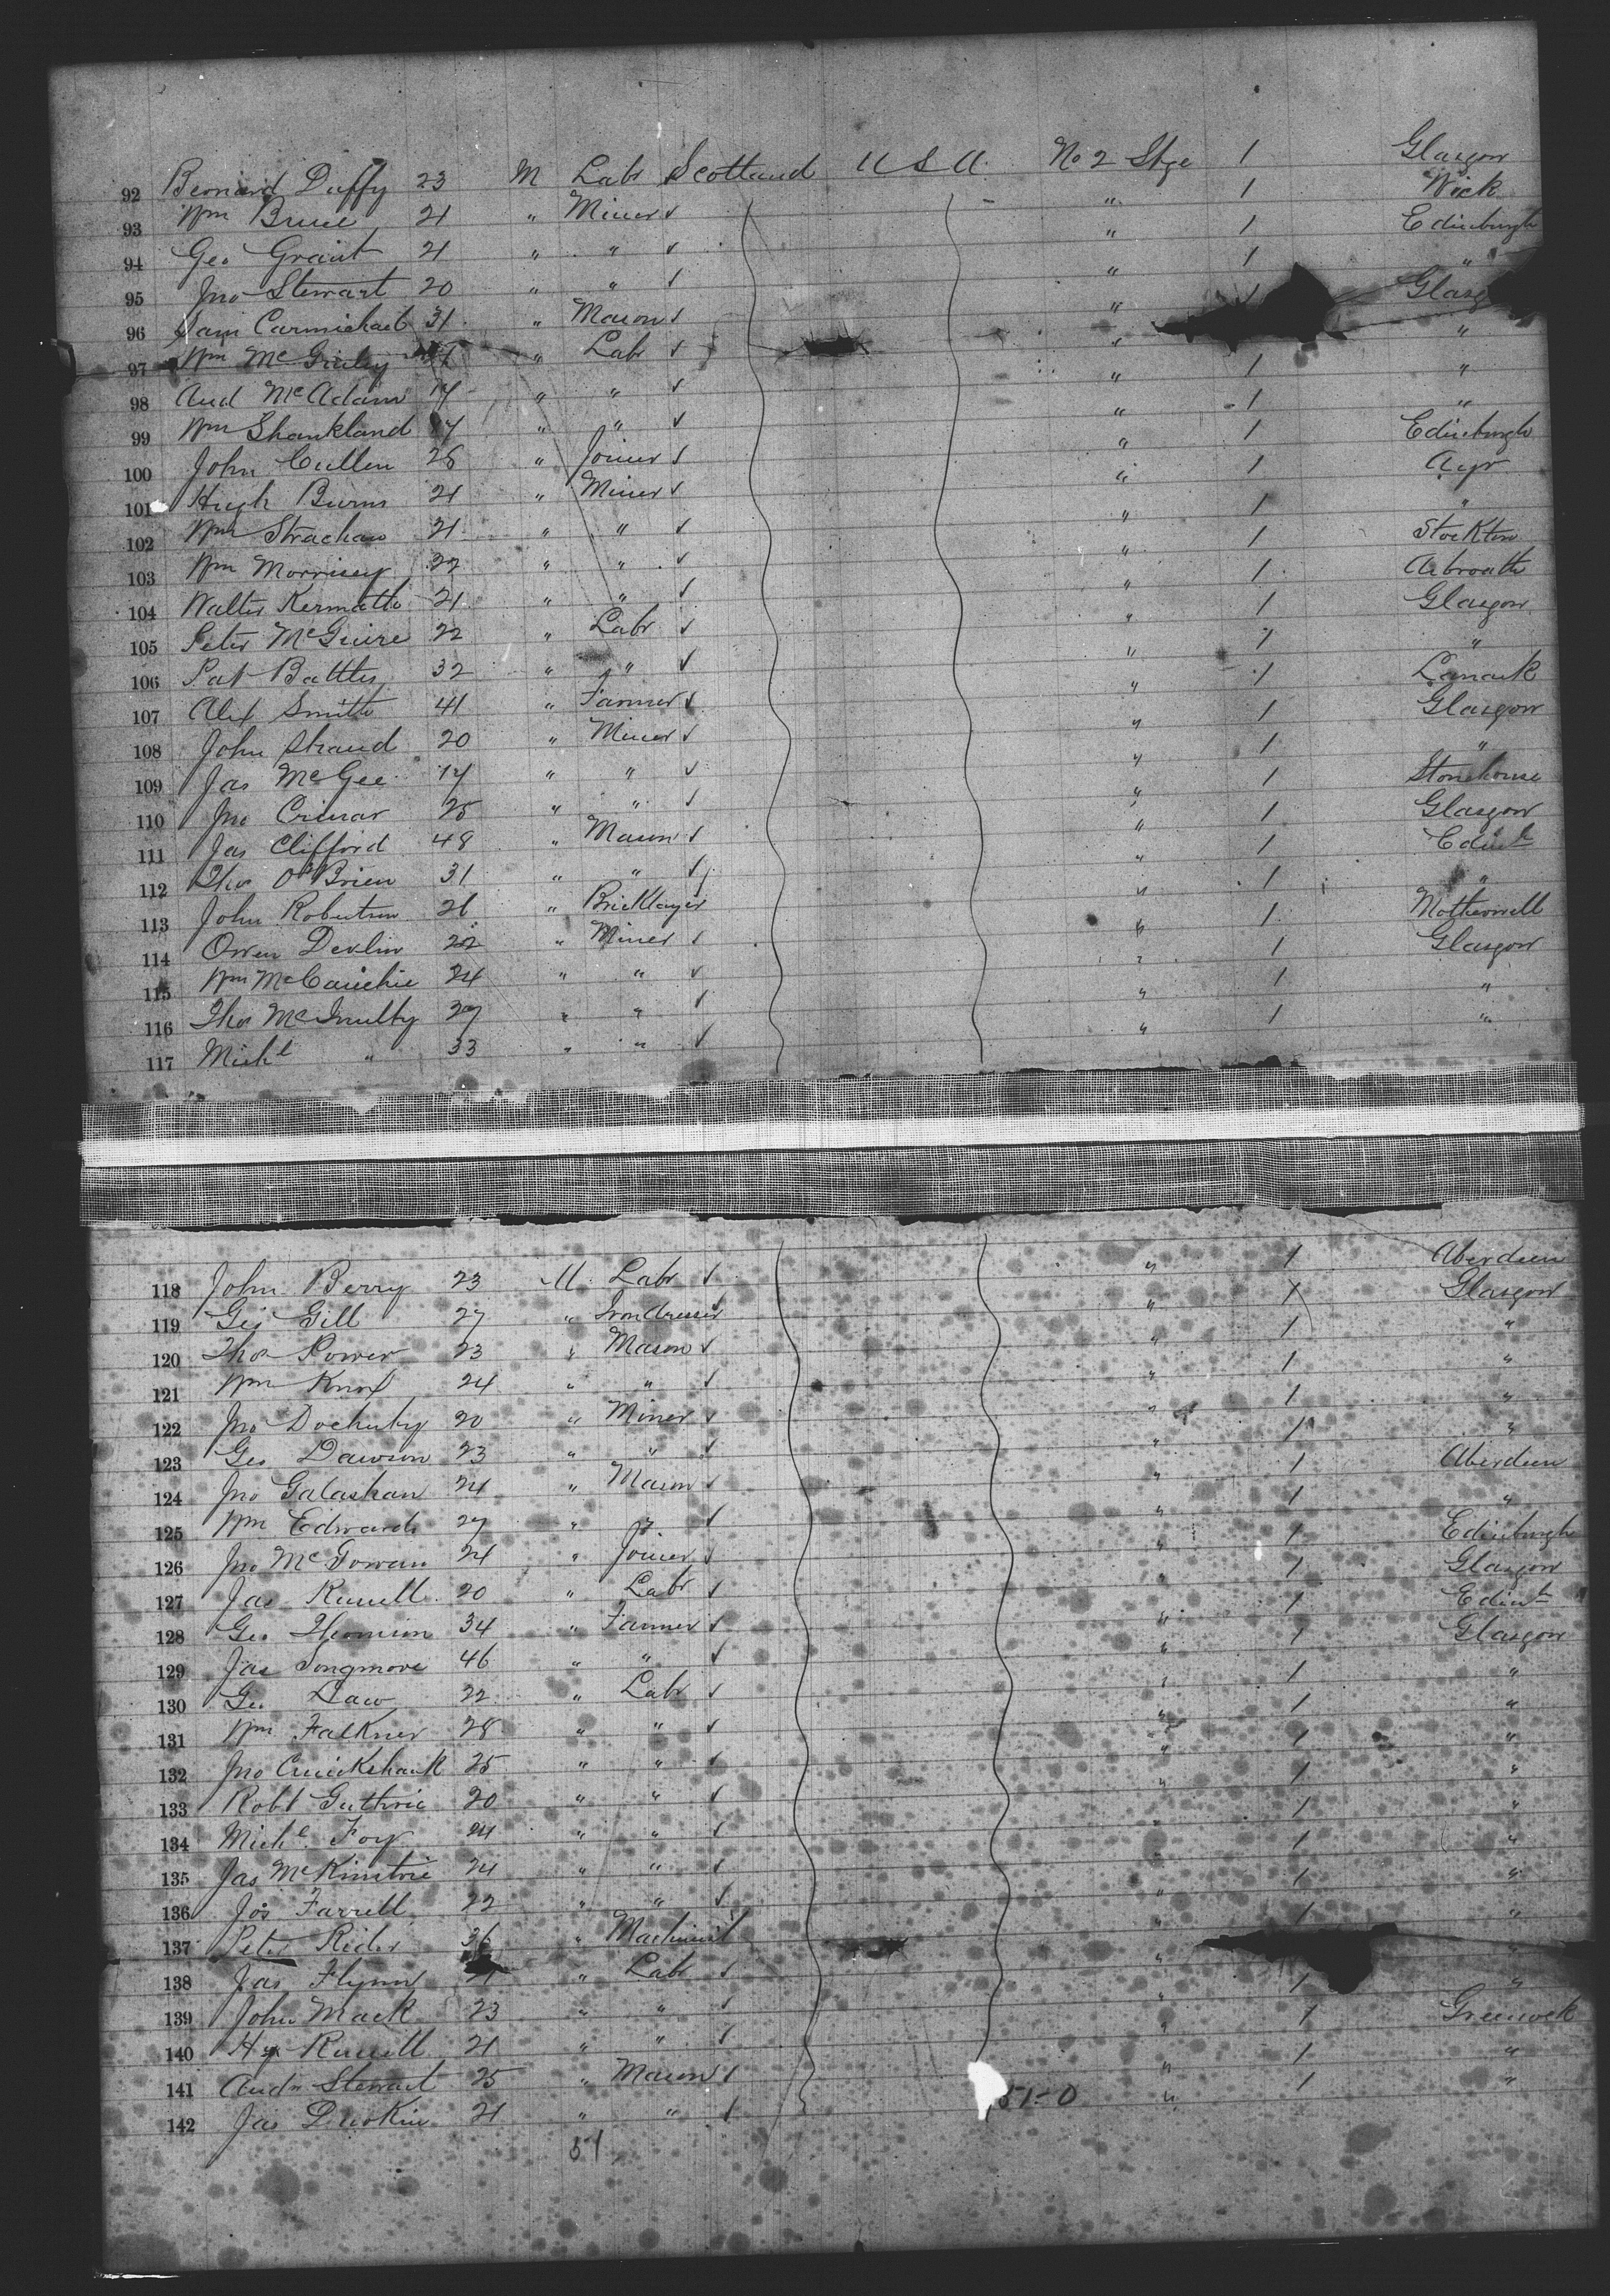 92 Bernard Duffy 23 M Labr Scotland U S A. No 2 Stge 1 Glasgow
93 Wm Bruce 21 " Miner " 1 Wick
94 Geo Grant 21 " " " 1 Edinburgh
95 Jno Stewart 20 " " " 1 "
96 Sam Carmichael 31 " Mason " 1 Glasg
97 Wm McGinley " Labr " "
98 And McAdam 17 " " " 1 "
99 Wm Shankland 17 " " " 1 "
100 John Cullen 28 " Joiner " 1 Edinburgh
101 Hugh Burns 21 " Miner " 1 Ayr
102 Wm Strachan 21 " " " 1 "
103 Wm Morrisey 22 " " " 1 Stockton
104 Walter Kermath 21 " " " 1 Arbroath
105 Peter McGuire 22 " Labr " 1 Glasgow
106 Pat Battles 32 " " " 1 "
107 Alex Smith 41 " Farmer " 1 Lanark
108 John Shand 20 " Miner " 1 Glasgow
109 Jas McGee 17 " " " 1 "
110 Jno 25 " " " 1 Stonehouse
111 Jas Clifford 48 " Mason " 1 Glasgow
112 Thos O'Brien 31 " " " 1 Edinb
113 John Robertson 26 " Bricklayer " 1 "
114 Owen Devlin 22 " Miner " 1 Motherwell
115 Wm 24 " " " 1 Glasgow
116 Thos McAnulty 27 " " " 1 "
117 Michl " 33 " " " 1 "
118 John Berry 23 M Labr " 1 Aberdeen
119 Geo Gill 27 " Irondresser " 1 Glasgow
120 Thos Power 23 " Mason " 1 "
121 Wm Knox 24 " " " 1 "
122 Jno Docherty 20 " Miner " 1 "
123 Geo Dawson 23 " " " 1 "
124 Jno Galashan 24 " Mason " 1 Aberdeen
125 Wm Edwards 27 " " " 1 "
126 Jno McGowan 24 " Joiner " 1 Edinburgh
127 Jas Russell 20 " Labr " 1 Glasgow
128 Geo Thomson 34 " Farmer " 1 Edinb
129 Jas Longmore 46 " " " 1 Glasgow
130 Geo Law 22 " Labr " 1 "
131 Wm Falkner 28 " " " 1 "
132 Jno Cruickshank 25 " " " 1 "
133 Robt Guthrie 20 " " " 1 "
134 Michl Foy 24 " " " 1 "
135 Jas McKimtrie 24 " " " 1 "
136 Jos Farrell 22 " " " 1 "
137 Peter Rider 36 " Machinist " 1 "
138 Jas Flynn 21 " Labr " "
139 John Mack 23 " " " 1 "
140 Hy Russell 21 " " " 1 Greenock
141 Andw Stewart 25 " Mason " 1 "
142 Jas Durkin 21 " " " 1 "
51-0
51